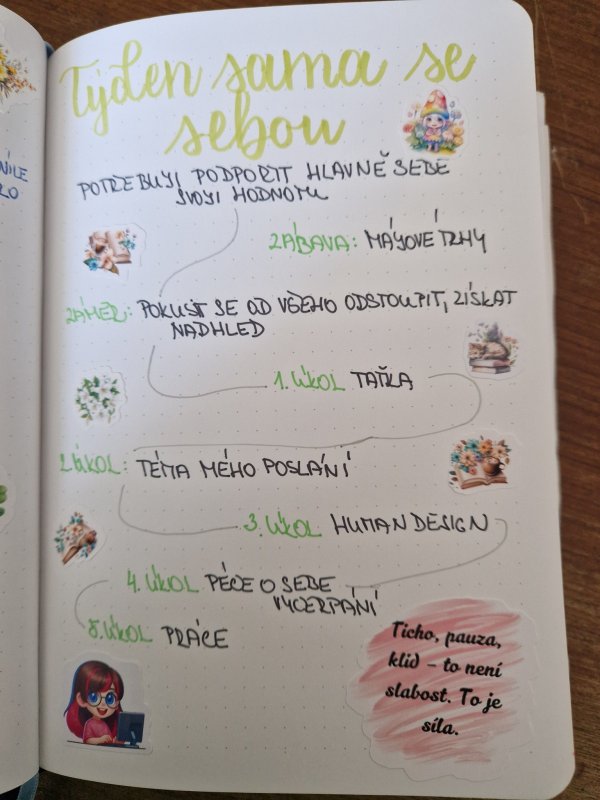 NILE
LO
Týden sama se
sebou
POTŘEBUJI PODPOŘIT HLAVNĚ SEBE
SVOJI HODNOTU
ZÁBAVA: MÁJOVÉ TRHY
ZÁMĚR: POKUSIT SE OD VŠEHO ODSTOUPIT, ZÍSKAT
NADHLED
1. ÚKOL TAŤKA
2. ÚKOL: TÉMA MÉHO POSLÁNÍ
3. ÚKOL HUMAN DESIGN
4. ÚKOL PÉČE O SEBE
VYČERPÁNÍ
5. ÚKOL PRÁCE
Ticho, pauza,
klid – to není
slabost. To je
síla.